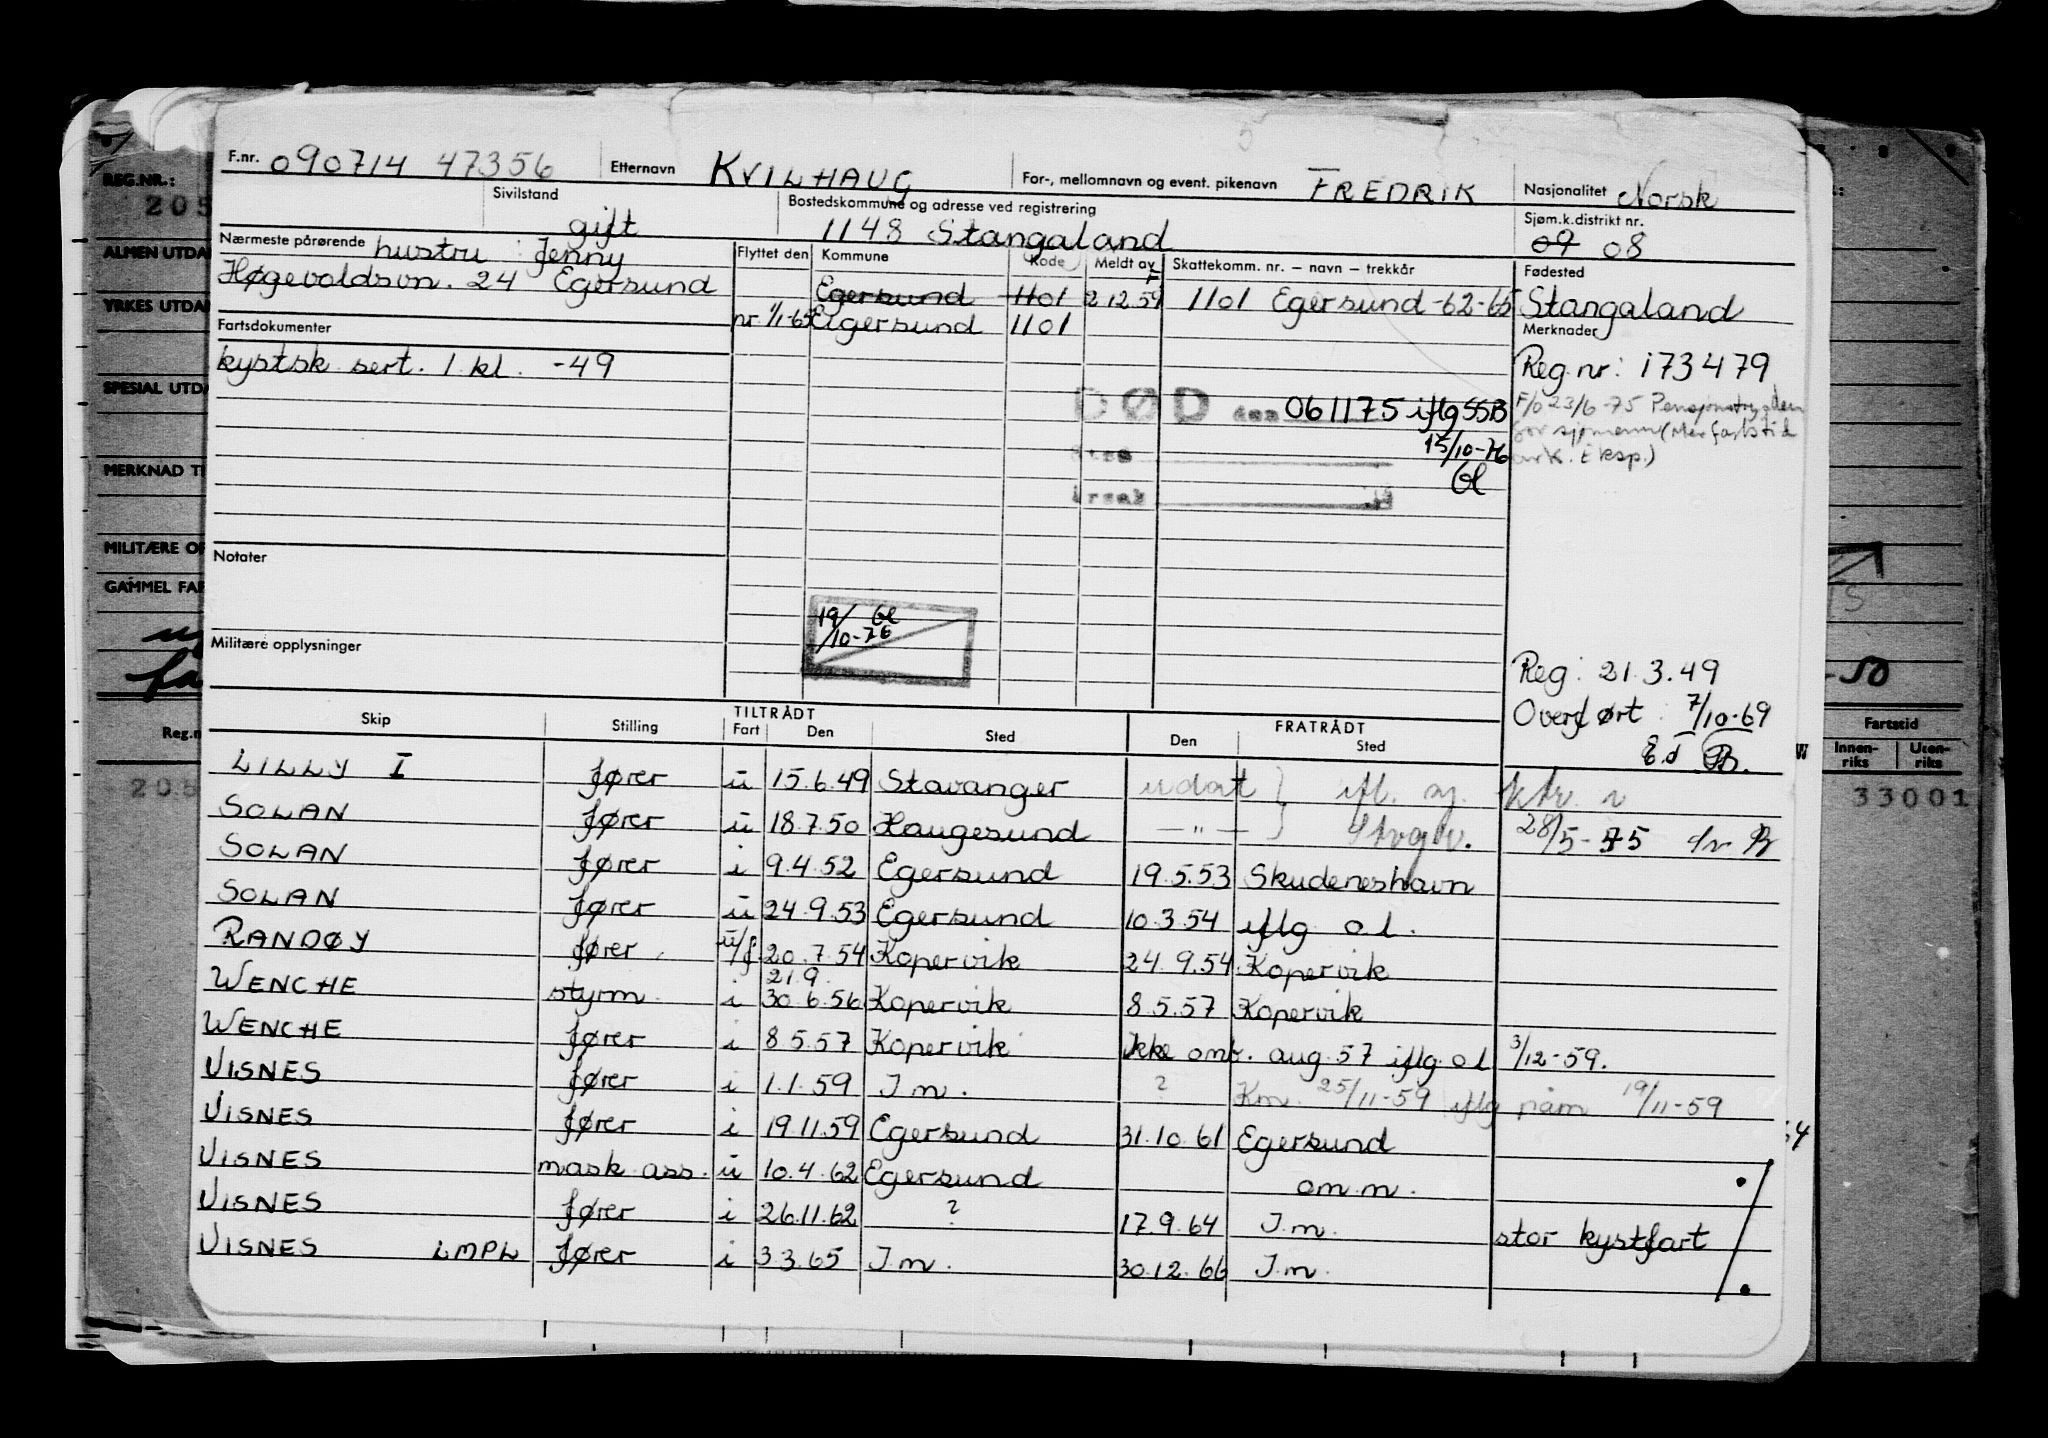 F.nr. 090714 47356 Etternavn KVILHAUG For-, mellomnavn og event. pikenavn FREDRIK Nasjonalitet Norsk
Sivilstand gift Bostedskommune og adresse ved registrering 1148 Stangaland Sjøm.k.distrikt nr. 09 08
Nærmeste pårørende hustru : Jenny
Høgevoldsvn. 24 Egersund
Flyttet den Kommune Kode Meldt av Skattekomm. nr. – navn – trekkår Fødested
Egersund 1101 2 12.59 1101 Egersund -62-65 Stangaland
nr 1/1-65 Eigersund 1101
Fartsdokumenter
kystsk. sert. 1. kl. -49
Merknader
Reg. nr: 173479
F/o 23/6-75 Pensjonstrygden
for sjømenn (Merfartstid
ark. Eksp.)
DØD den 061175 iflg SSB
15/10-76
Gl
Årsak
Notater
19/10-76 Gl
Militære opplysninger
Reg: 21.3.49
Overført : 7/10-69
Skip Stilling TILTRÅDT Fart Den Sted FRATRÅDT Den Sted
LILLY I fører u 15.6.49 Stavanger udat
SOLAN fører u 18.7.50 Haugesund — " — 28/5-75
SOLAN fører i 9.4.52 Egersund 19.5.53 Skudeneshavn
SOLAN fører u 24.9.53 Egersund 10.3.54 iflg o l.
RANDØY fører u/f 20.7.54 Kopervik 24.9.54 Kopervik
WENCHE styrm. i 21.9. 30.6.56 Kopervik 8.5.57 Kopervik
WENCHE fører i 8 5.57 Kopervik Ikke omb. aug. 57 iflg. o l 3/12-59.
VISNES fører i 1.1.59 I m. ? Km. 25/11-59 iflg påm 19/11-59
VISNES fører i 19.11.59 Egersund 31.10.61 Egersund
VISNES mask.ass. u 10.4.62 Egersund om m.
VISNES fører i 26.11.62 ? 17.9.64 I m. stor kystfart
VISNES LMPL fører i 3 3.65 I m. 30.12.66 I m.
REG.NR.:
205
ALMEN UTDA
YRKES UTDA
SPESIAL UTDA
MERKNAD T
MILITÆRE OP
GAMMEL FAR
Reg.n
-50
Fartstid
Innen-riks Uten-riks
33001